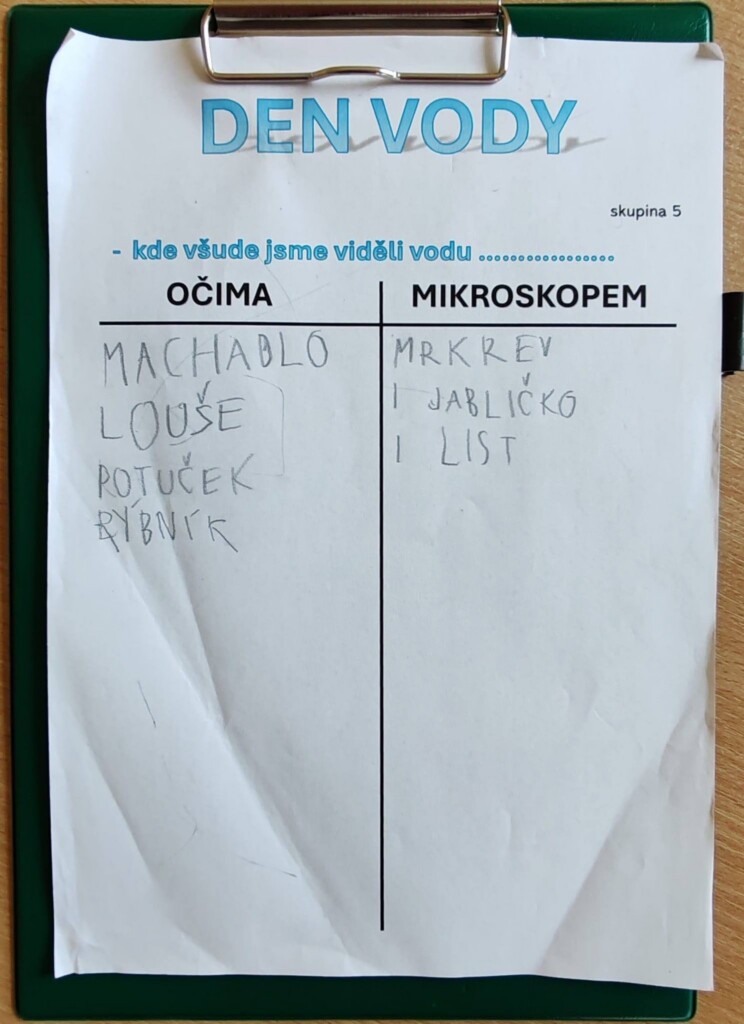 DEN VODY
skupina 5
- kde všude jsme viděli vodu ..................
OČIMA
MIKROSKOPEM
MACHADLO
LOUŠE
POTUČEK
RÝBNÍK
MRKREV
1 JABLIČKO
1 LIST